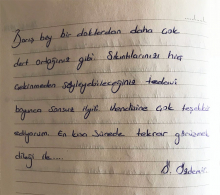 Barış bey bir doktordan daha çok
dert ortağınız gibi. Sıkıntılarınızı hiç
çekinmeden söyleyebileceğiniz tedavi
boyunca sonsuz ilgili kendisine çok teşekkür
ediyorum. En kısa sürede tekrar görüşmek
dileği ile....